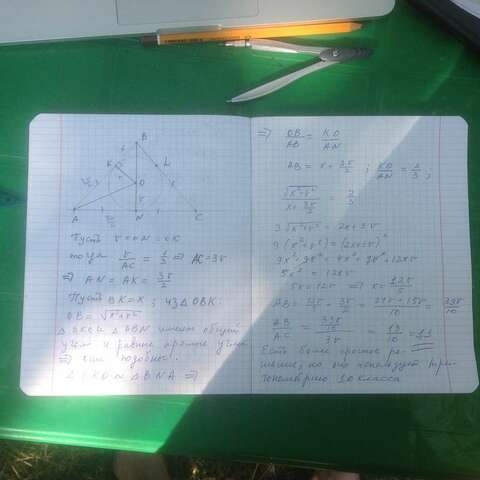 B
K
L
O
A
N
C
Пусть r = ON = OK
тогда r/AC = 1/3 ⇒ AC = 3r
⇒ AN = AK = 3r/2
Пусть BK = x; из △OBK:
OB = √(x²+r²)
△BKO и △ABN имеют общий
угол и равные прямые углы
⇒ они подобны.
△BKO ~ △BNA ⇒
⇒ OB/AB = KO/AN
AB = x + 3r/2 ; KO/AN = 2/3;
√(x²+r²)/(x + 3r/2) = 2/3
3√(x²+r²) = 2x + 3r
9(x²+r²) = (2x+3r)²
9x² + 9r² = 4x² + 9r² + 12xr
5x² = 12xr
5x = 12r ⇒ x = 12r/5
AB = 12r/5 + 3r/2 = (24r + 15r)/10 = 39r/10
AB/AC = (39r/10)/3r = 13/10 = 1,3
Есть более простое ре-
шение, но оно использует три-
гонометрию 10 класса